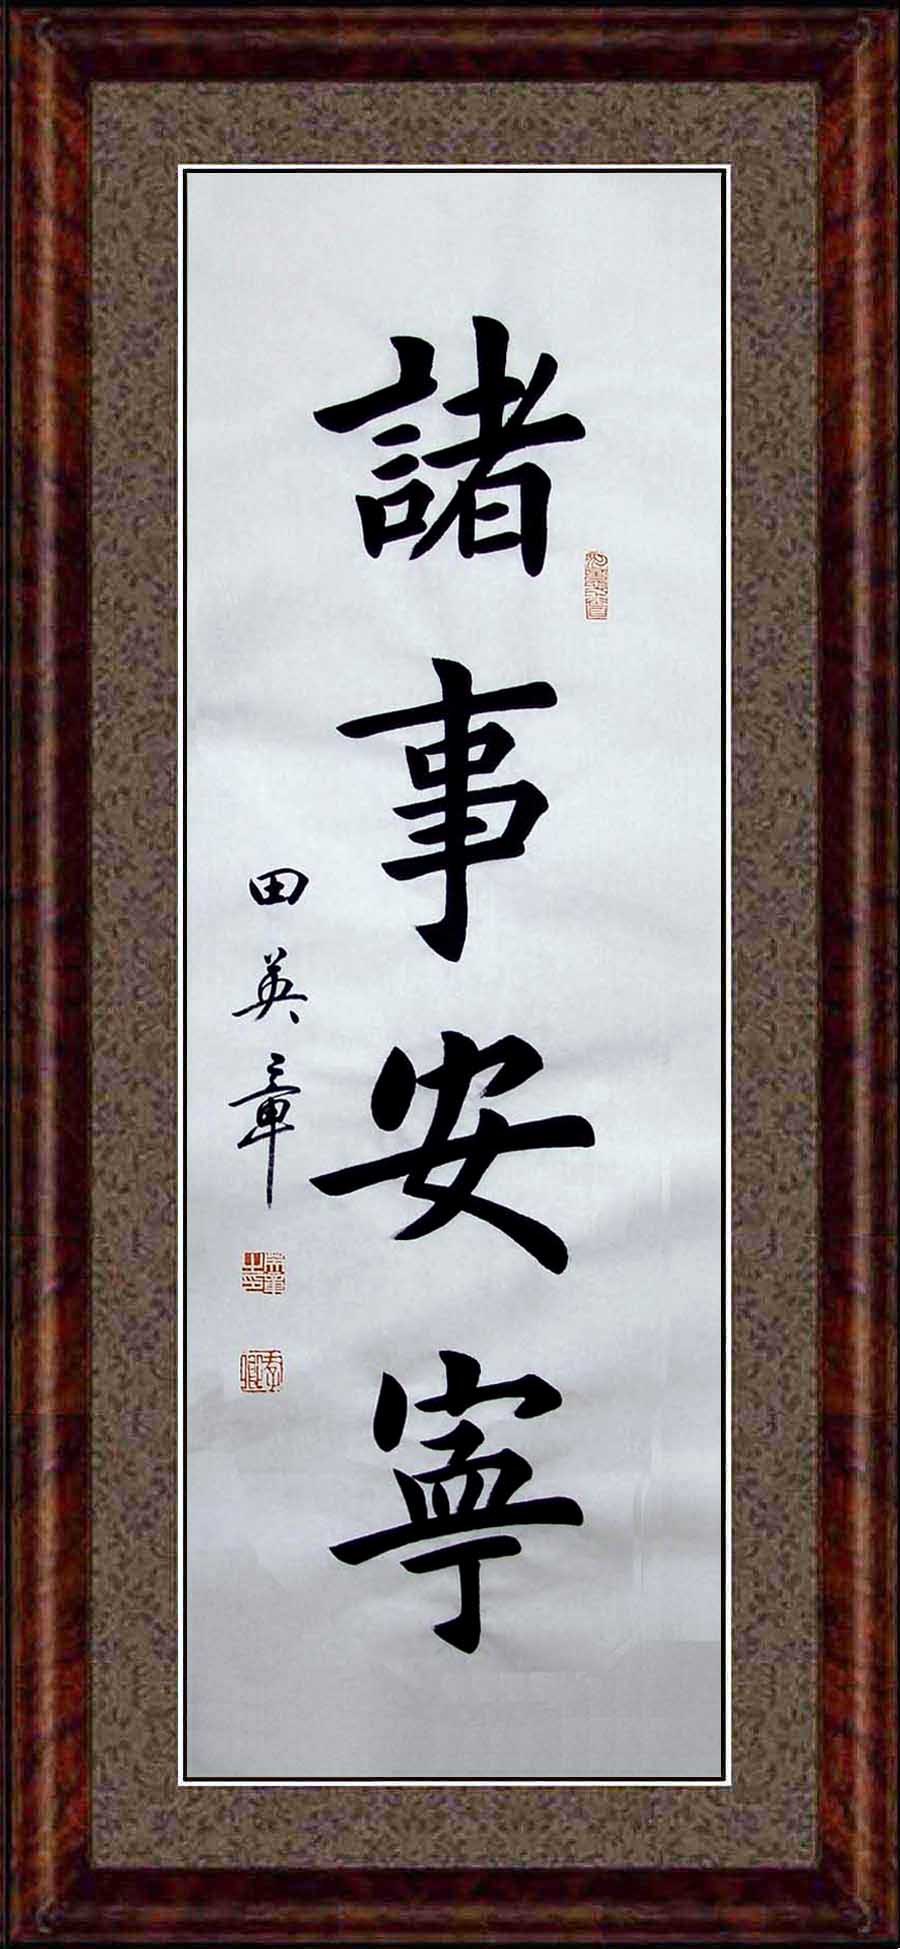 諸事安寧
田英章